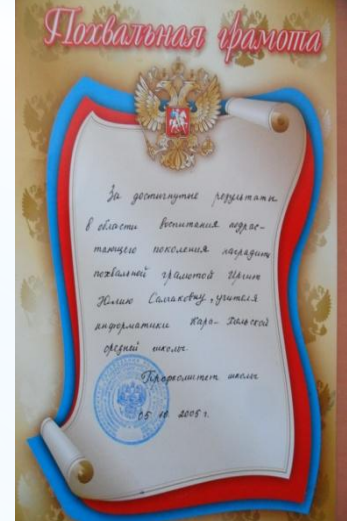 Похвальная грамота
За достигнутые результаты
в области воспитания подрас-
тающего поколения наградить
похвальной грамотой Иргит
Юлию Самаковну, учителя
информатики Кара-Хольской
средней школы
Профкомитет школы
05 10 2005 г.